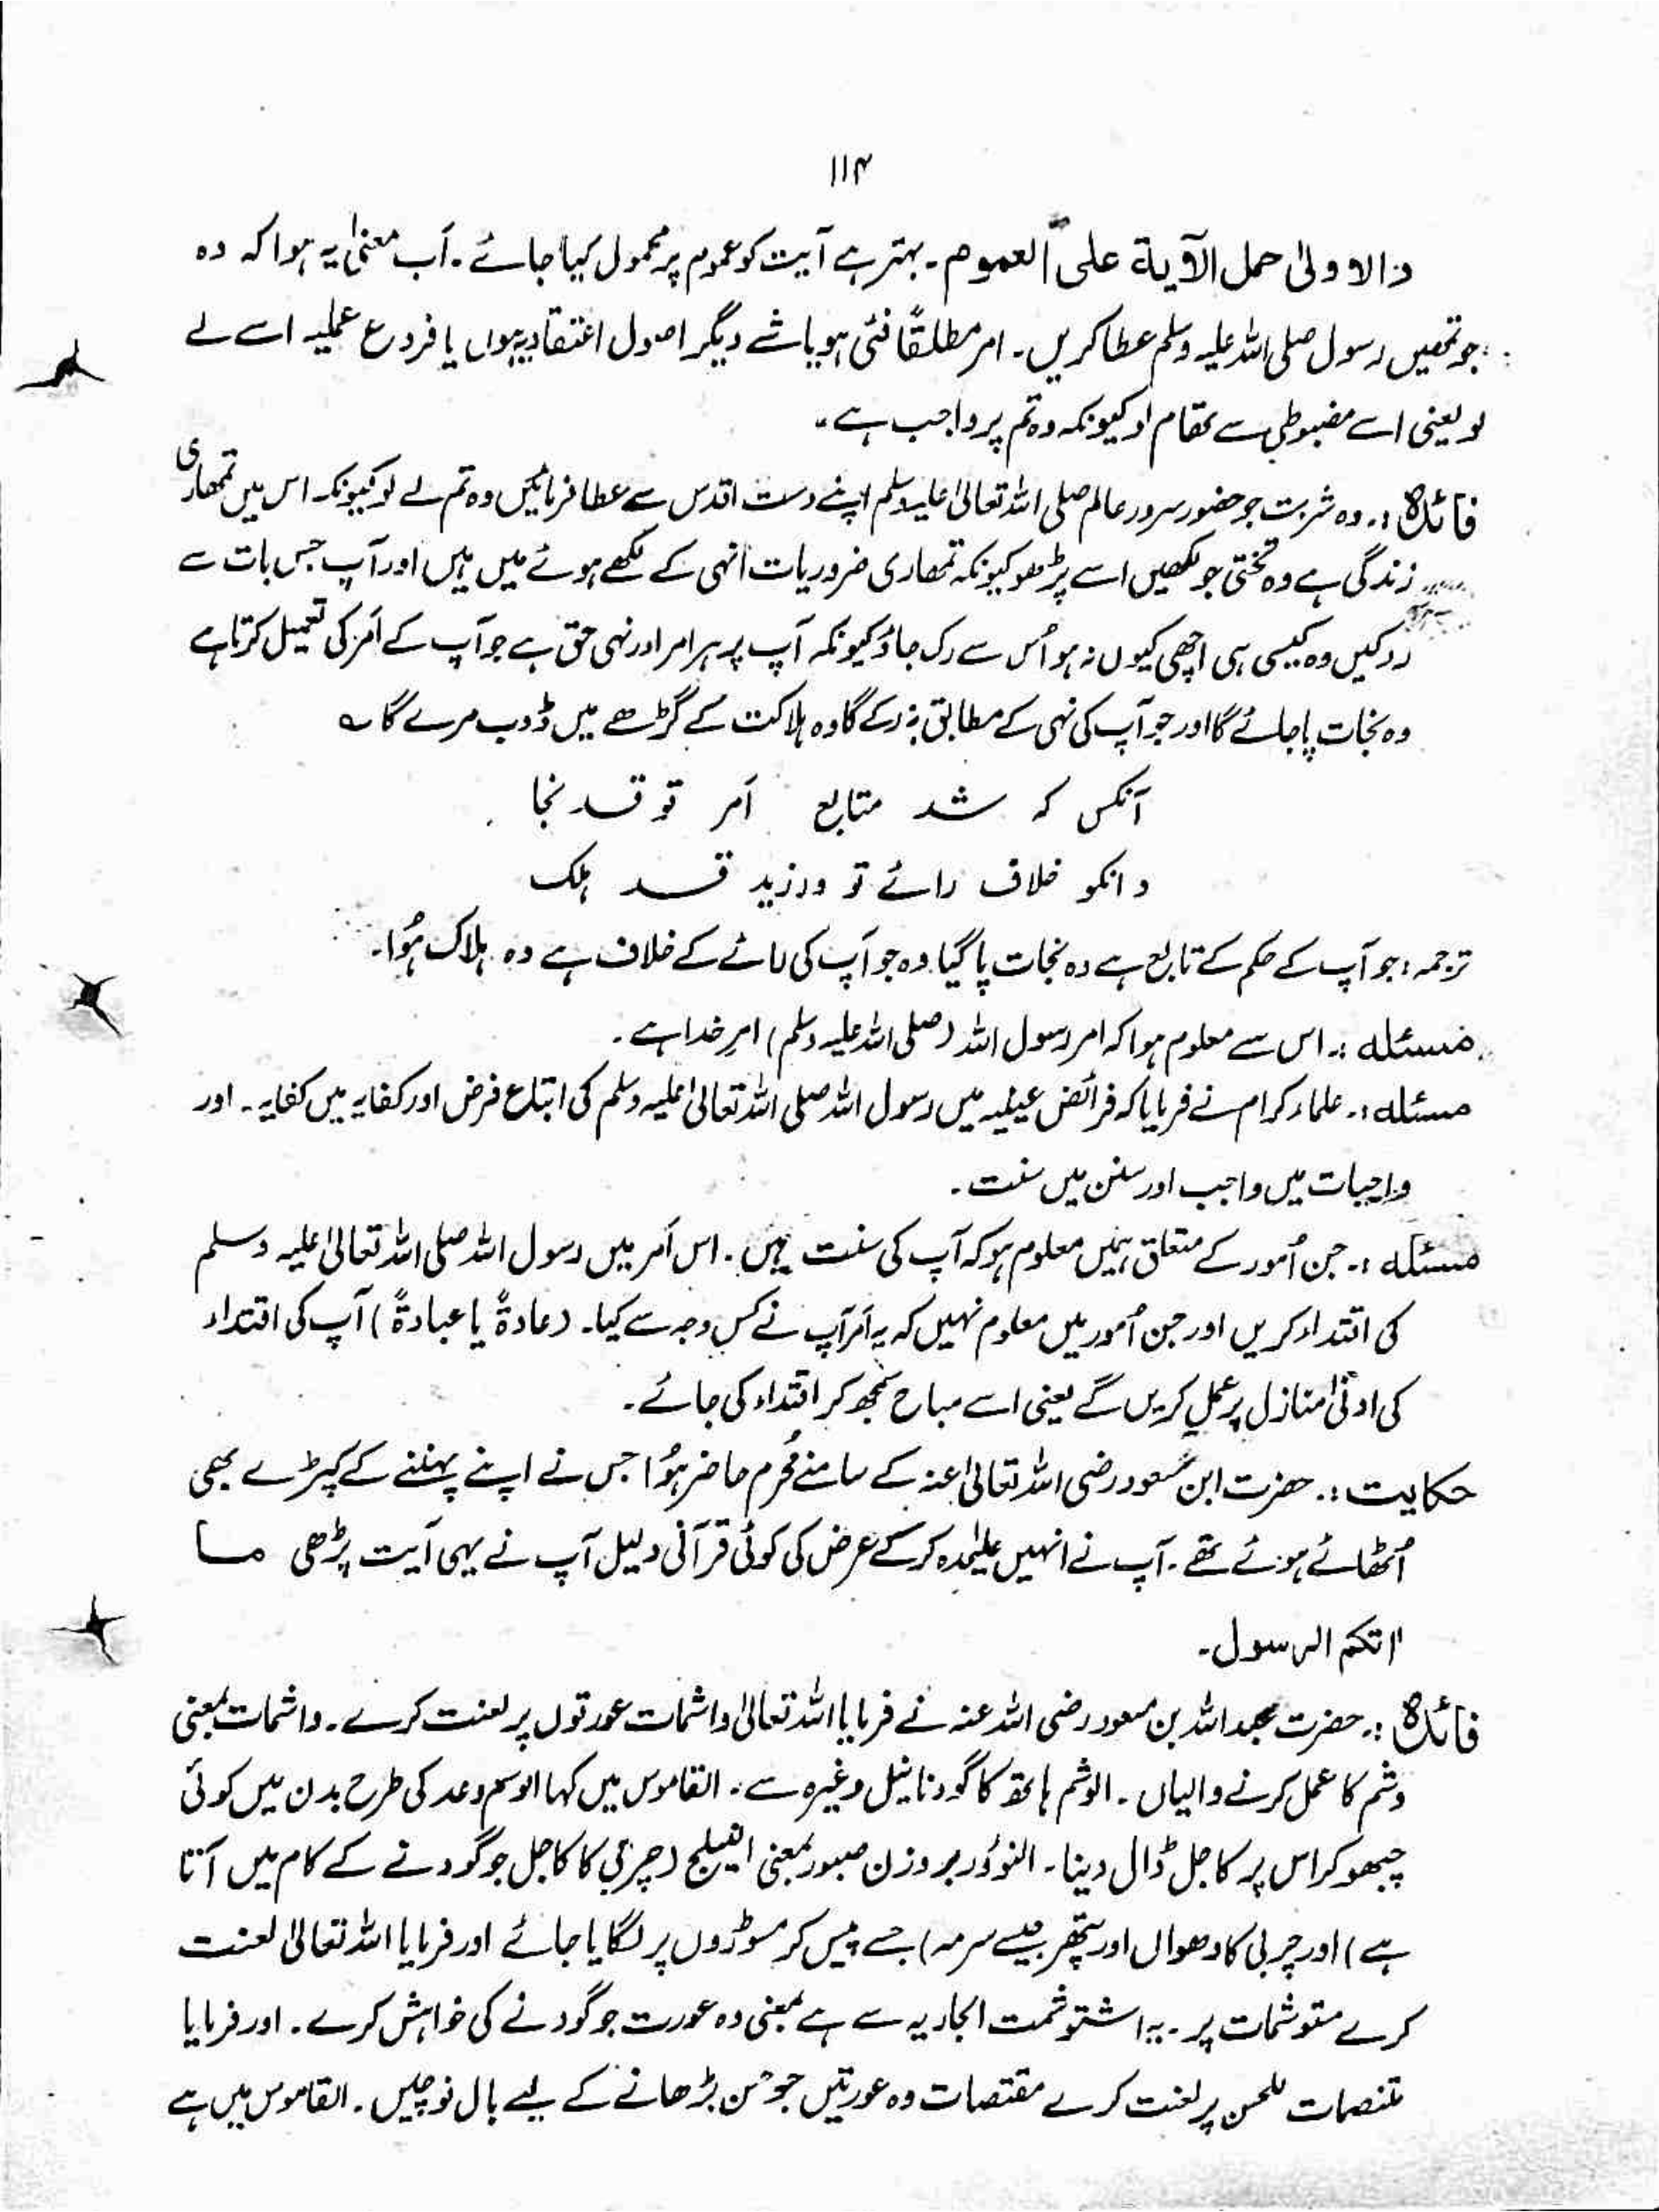 ۱۱۴
والاولیٰ حمل الآیۃ علی العموم۔ بہتر ہے آیت کو عموم پر محمول کیا جائے۔ اَب معنیٰ یہ ہوا کہ وہ
جو تمھیں رسول صلی اللہ علیہ وسلم عطا کریں۔ امر مطلقاً فئی ہو یا شے دیگر اصول اعتقادیہ ہوں یا فروع عملیہ اسے لے
لو یعنی اسے مضبوطی سے تھام لو کیونکہ وہ تم پر واجب ہے۔
فائدہ :۔ وہ شربت جو حضور سرور عالم صلی اللہ تعالیٰ علیہ وسلم اپنے دست اقدس سے عطا فرمائیں وہ تم لے لو کیونکہ اس میں تمھاری
زندگی ہے وہ تختی جو لکھیں اسے پڑھو کیونکہ تمھاری ضروریات انہی کے لکھے ہوئے میں ہیں اور آپ جس بات سے
روکیں وہ کیسی ہی اچھی کیوں نہ ہو اُس سے رک جاؤ کیونکہ آپ پر ہر امر اور نہی حق ہے جو آپ کے اَمر کی تعمیل کرتا ہے
وہ نجات پا جائے گا اور جو آپ کی نہی کے مطابق نہ رکے گا وہ ہلاکت کے گڑھے میں ڈوب مرے گا ؎
آنکس کہ شد متابع اَمر تو قد نجا
وانکو خلاف رائے تو ورزید قد ہلک
ترجمہ : جو آپ کے حکم کے تابع ہے وہ نجات پا گیا وہ جو آپ کی رائے کے خلاف ہے وہ ہلاک ہُوا۔
مسئلہ :۔ اس سے معلوم ہوا کہ امر رسول اللہ (صلی اللہ علیہ وسلم) امرِ خدا ہے۔
مسئلہ :۔ علماء کرام نے فرمایا کہ فرائض عینیہ میں رسول اللہ صلی اللہ تعالیٰ علیہ وسلم کی اتباع فرض اور کفایہ میں کفایہ۔ اور
واجبات میں واجب اور سنن میں سنت۔
مسئلہ :۔ جن اُمور کے متعلق ہمیں معلوم ہو کہ آپ کی سنت ہیں۔ اس اَمر میں رسول اللہ صلی اللہ تعالیٰ علیہ وسلم
کی اقتداء کریں اور جن اُمور میں معلوم نہیں کہ یہ اَمر آپ نے کس وجہ سے کیا۔ (عادۃً یا عبادۃً) آپ کی اقتداء
کی ادنیٰ منازل پر عمل کریں گے یعنی اسے مباح سمجھ کر اقتداء کی جائے۔
حکایت :۔ حضرت ابن مسعود رضی اللہ تعالیٰ عنہ کے سامنے مُحرم حاضر ہُوا جس نے اپنے پہننے کے کپڑے بھی
اُٹھائے ہوئے تھے۔ آپ نے انہیں علیٰحدہ کر کے عرض کی کوئی قرآنی دلیل آپ نے یہی آیت پڑھی ما
اٰتٰکم الرسول۔
فائدہ :۔ حضرت عبداللہ بن مسعود رضی اللہ عنہ نے فرمایا اللہ تعالیٰ واشمات عورتوں پر لعنت کرے۔ واشمات بمعنی
وشم کا عمل کرنے والیاں۔ الوشم ہاتھ کا گودنا نیل وغیرہ سے۔ القاموس میں کہا الوسم وعد کی طرح بدن میں کوئی
چبھو کر اس پر کاجل ڈال دینا۔ النوؤر بروزن صبور بمعنی النیلج (چربی کا کاجل جو گودنے کے کام میں آتا
ہے) اور چربی کا دھواں اور پتھر جیسے سرمہ) جسے پیس کر مسوڑوں پر لگایا جائے اور فرمایا اللہ تعالیٰ لعنت
کرے متوشمات پر۔ یہ اشتوشمت الجاریہ سے ہے بمعنی وہ عورت جو گودنے کی خواہش کرے۔ اور فرمایا
متنصمات للحسن پر لعنت کرے مقتصات وہ عورتیں جو حسن بڑھانے کے لیے بال نوچیں۔ القاموس میں ہے